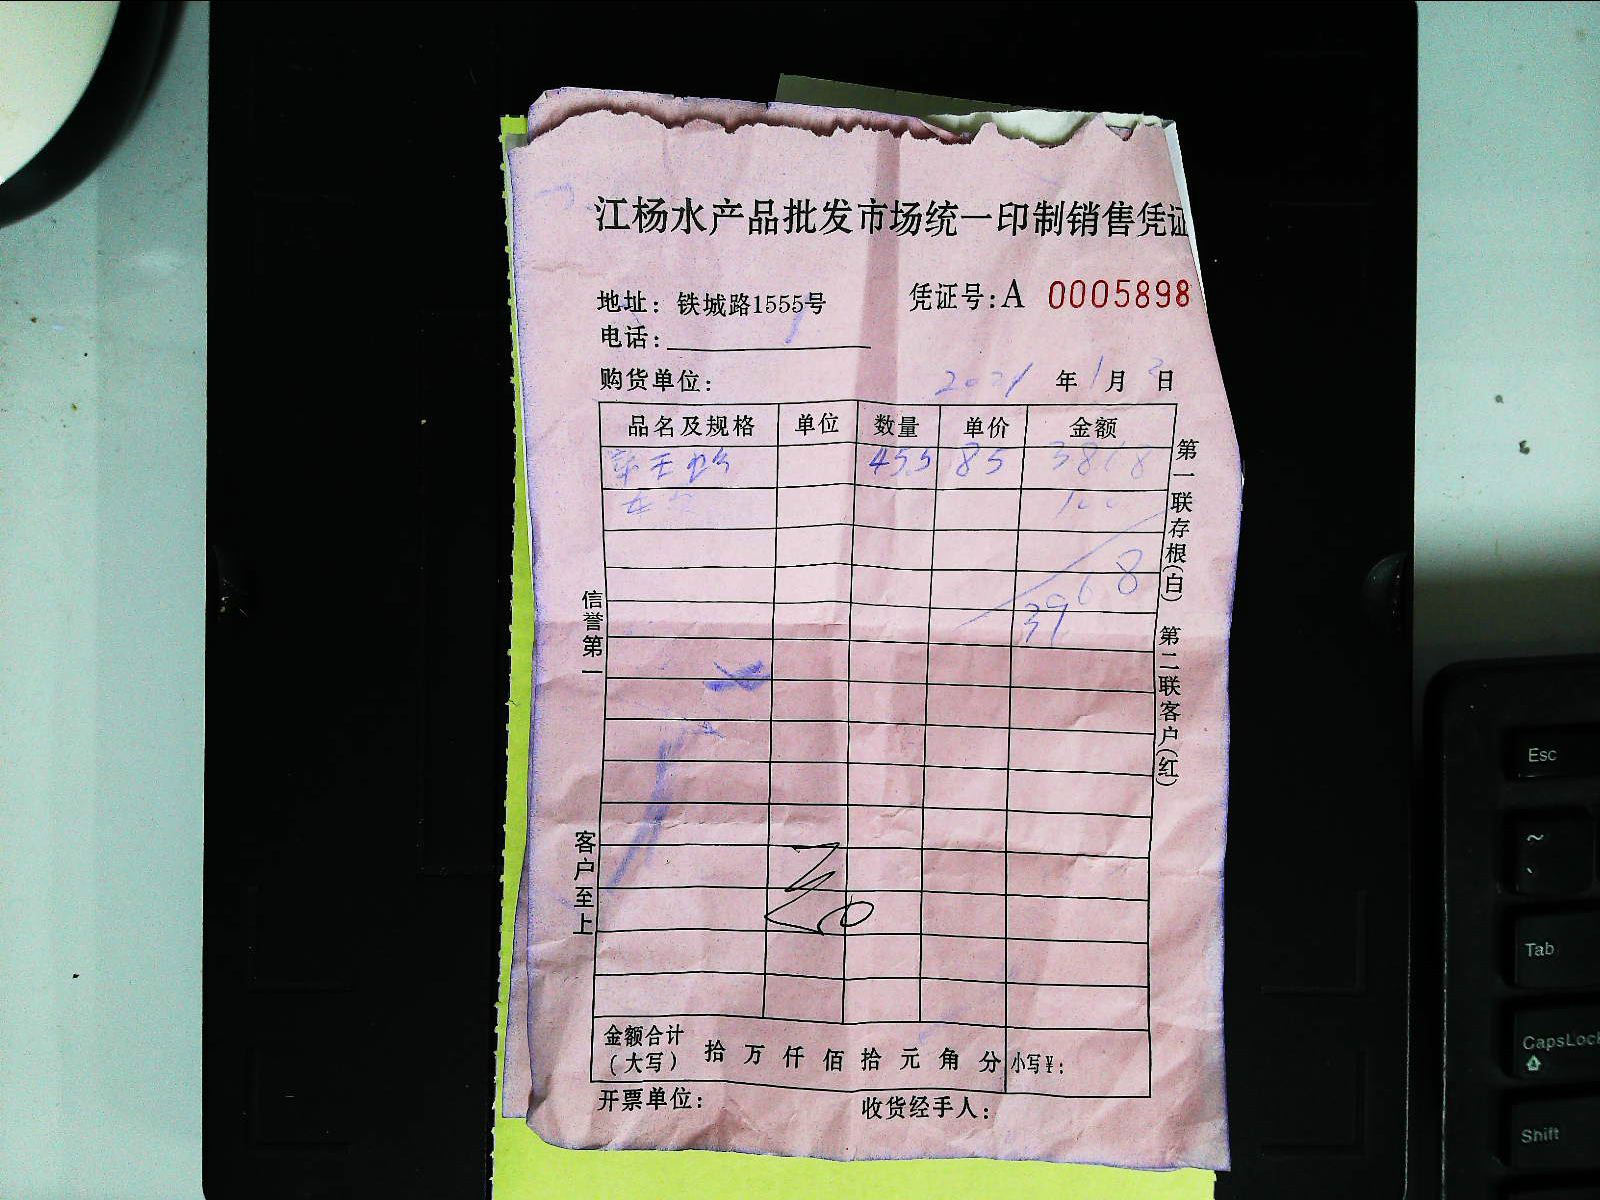 江杨水产品批发市场统一印制销售凭证
地址：铁城路1555号
凭证号：A 0005898
电话：
购货单位：
2021 年 1 月 2 日
品名及规格 单位 数量 单价 金额
45.5 85 3868
100
3968
第一联存根(白) 第二联客户(红)
信誉第一
客户至上
金额合计
(大写) 拾 万 仟 佰 拾 元 角 分 小写¥：
开票单位： 收货经手人：
Esc
~
Tab
CapsLock
Shift